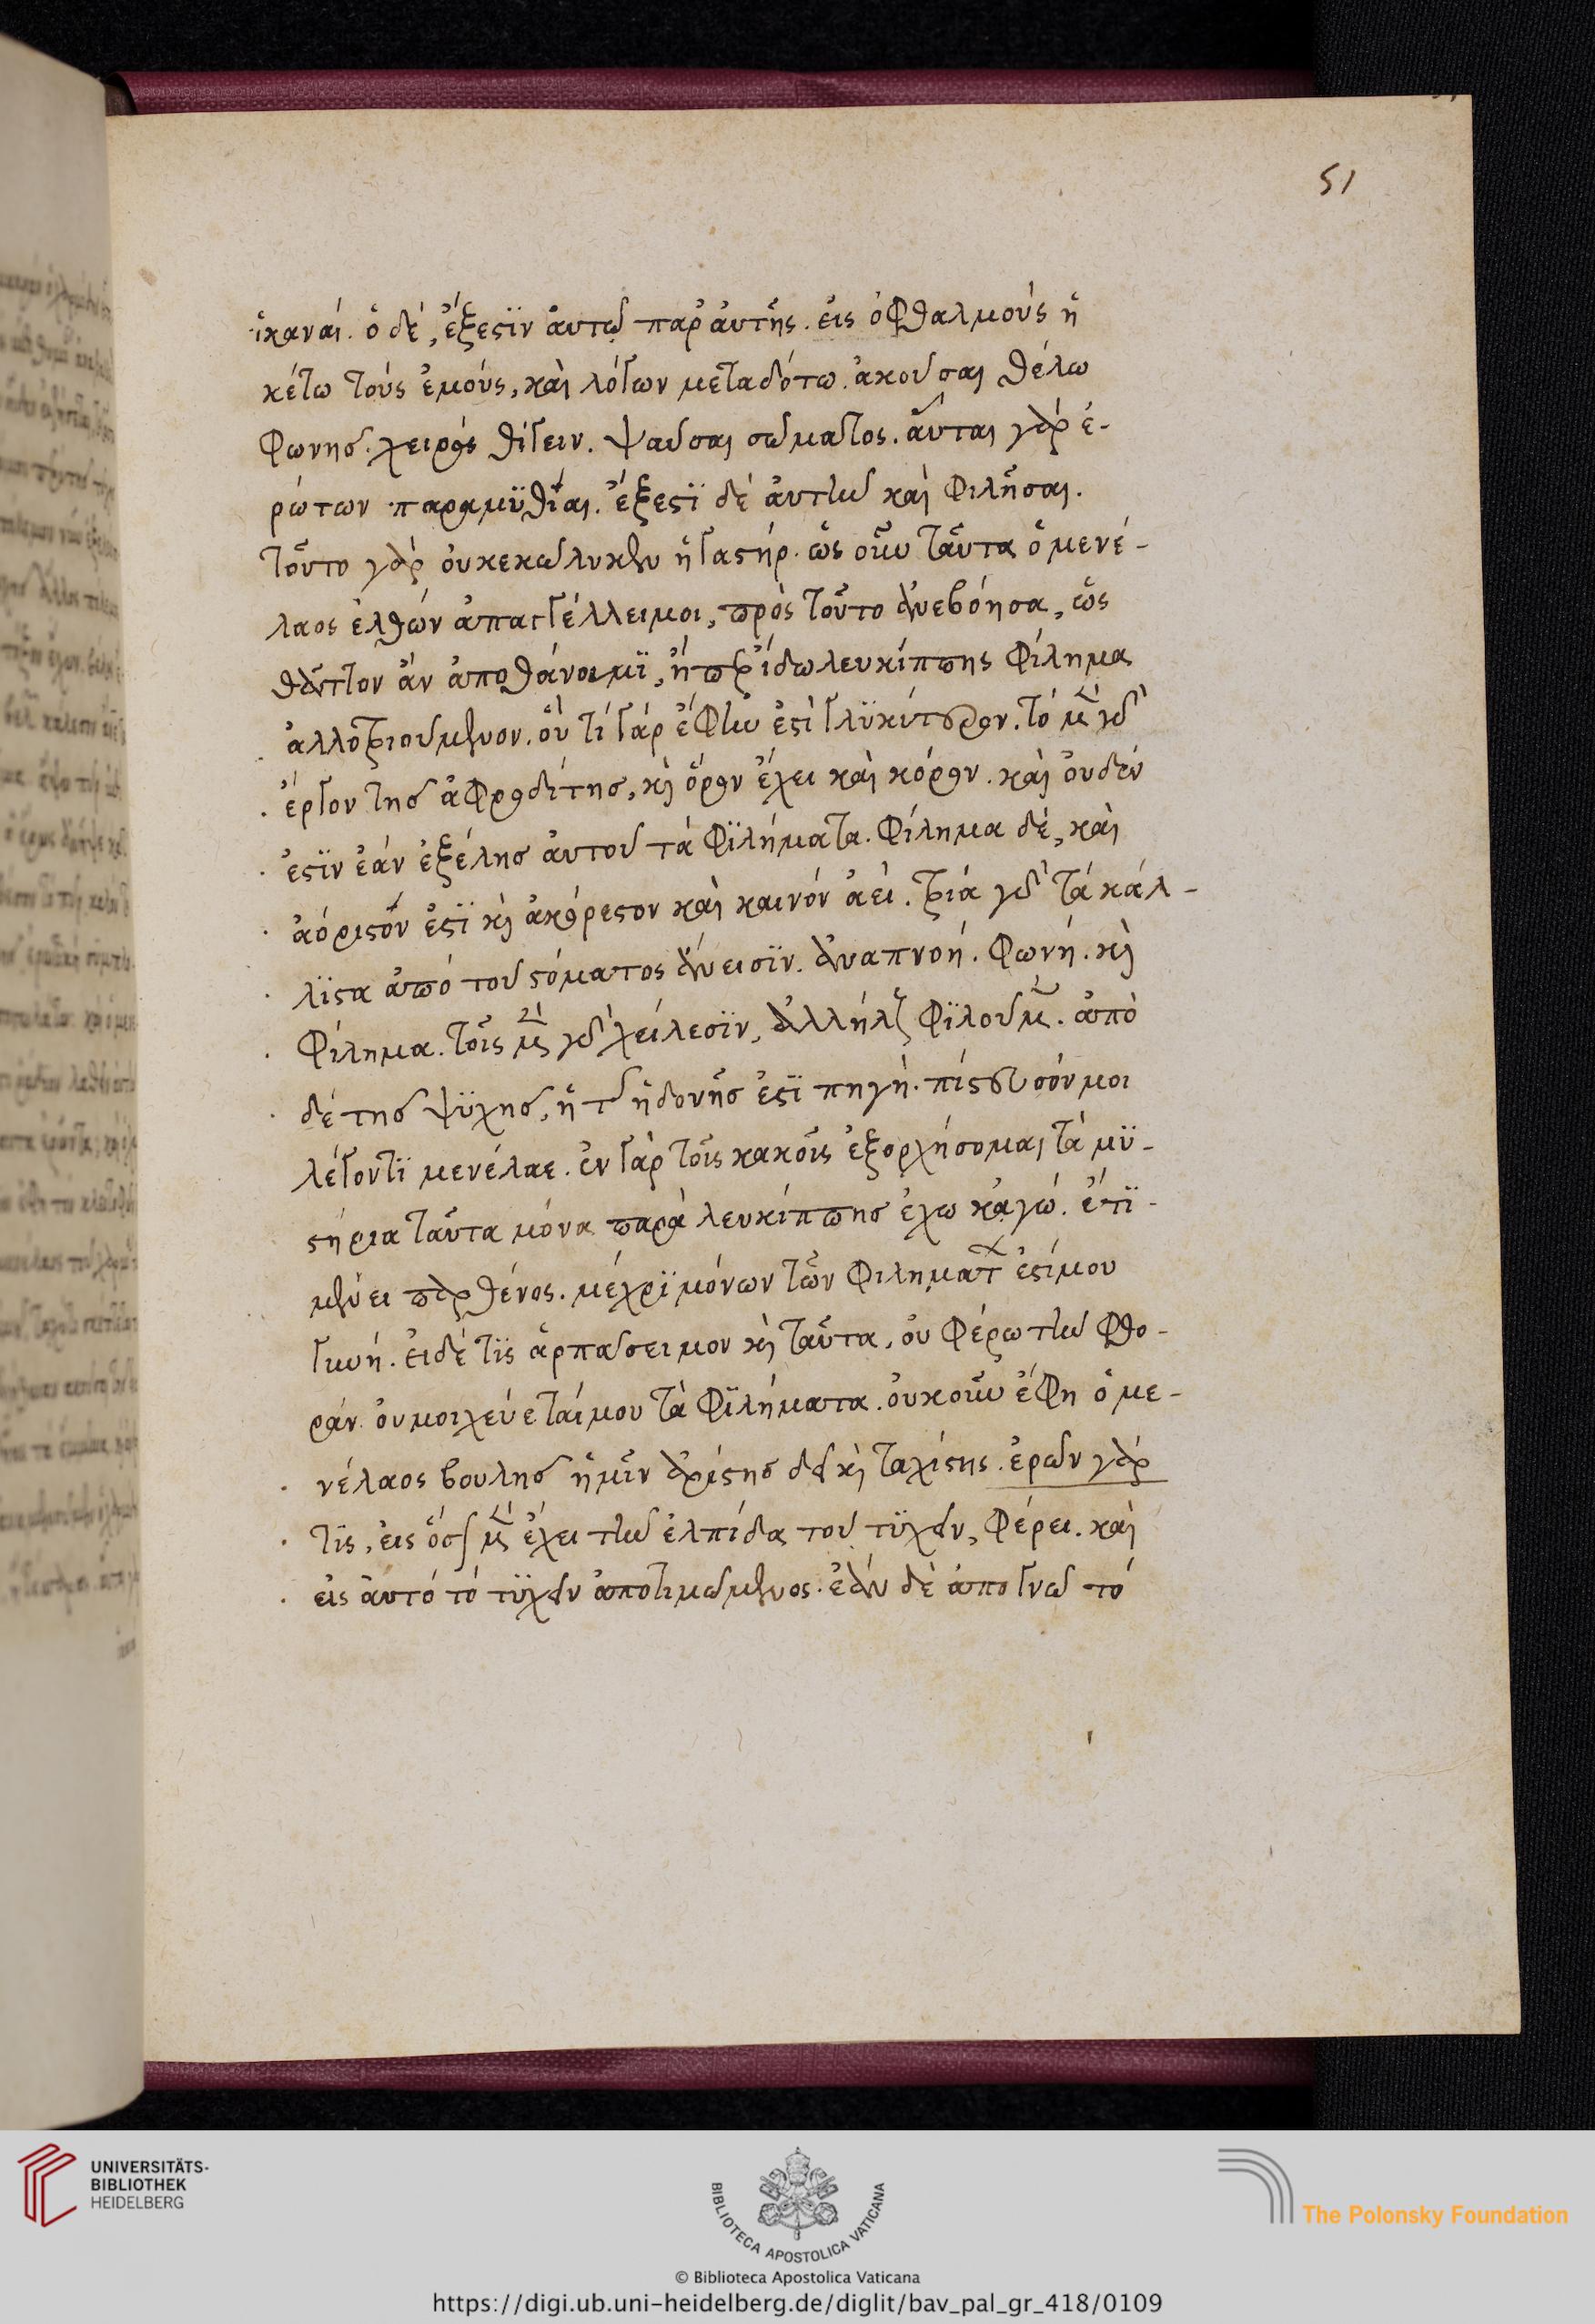 51
ἱκαναί. ὁ δέ, ἔξεστιν αὐτῷ παρ' αὐτῆς. εἰς ὀφθαλμούς ἡ
κέτω τούς ἐμούς, καὶ λόγων μεταδότω. ἀκοῦσαι θέλω
φωνῆς. χειρός θίγειν. ψαῦσαι σώματος. αὗται γάρ ἐ-
ρώτων παραμυθίαι. ἔξεστι δέ αὐτήν καὶ φιλῆσαι.
τοῦτο γάρ οὐ κεκώλυκεν ἡ γαστήρ. ὡς οὖν ταῦτα ὁ μενέ-
λαος ἐλθών ἀπαγγέλλει μοι, πρὸς τοῦτο ἀνεβόησα, ὡς
θᾶττον ἄν ἀποθάνοιμι, ἤ περίίδω λευκίππης φίλημα
ἀλλοτριούμενον. οὗ τί γάρ ἔφην ἐστὶ γλυκύτερον. τό μὲν γὰρ
ἔργον τῆς ἀφροδίτης, καὶ ὅρον ἔχει καὶ κόρον. καὶ οὐδέν
ἐστιν ἐάν ἐξέλης αὐτοῦ τά φιλήματα. φίλημα δέ, καὶ
ἀόριστόν ἐστι καὶ ἀκόρεστον καὶ καινόν ἀεί. τρία γὰρ τά κάλ-
λιστα ἀπό τοῦ στόματος ἄνεισιν. ἀναπνοή. φωνή. καὶ
φίλημα. τοῖς μὲν γὰρ χείλεσιν, ἀλλήλους φιλοῦμεν. ἀπὸ
δέ τῆς ψυχῆς, ἡ τῆς ἡδονῆς ἐστι πηγή. πίστευσόν μοι
λέγοντι μενέλαε. ἐν γὰρ τοῖς κακοῖς ἐξορχήσομαι τὰ μυ-
στήρια ταῦτα μόνα παρὰ λευκίππης ἔχω κἀγώ. ἔτι
μένει παρθένος. μέχρι μόνων τῶν φιλημάτων ἐστί μου
γυνή. εἰ δέ τις ἁρπάσει μου καὶ ταῦτα, οὐ φέρω τήν φθο-
ράν. οὐ μοιχεύεταί μου τὰ φιλήματα. οὐκοῦν ἔφη ὁ με-
νέλαος βουλῆς ἡμῖν ἀρίστης δεῖ καὶ ταχίστης. ἐρῶν γάρ
τις, εἰς ὅσον μὲν ἔχει τήν ἐλπίδα τοῦ τυχεῖν, φέρει. καὶ
εἰς αὐτό τό τυχεῖν ἀποτιμώμενος. ἐάν δὲ ἀπογνῷ τό
UNIVERSITÄTS-
BIBLIOTHEK
HEIDELBERG
BIBLIOTECA APOSTOLICA VATICANA
The Polonsky Foundation
© Biblioteca Apostolica Vaticana
https://digi.ub.uni-heidelberg.de/diglit/bav_pal_gr_418/0109